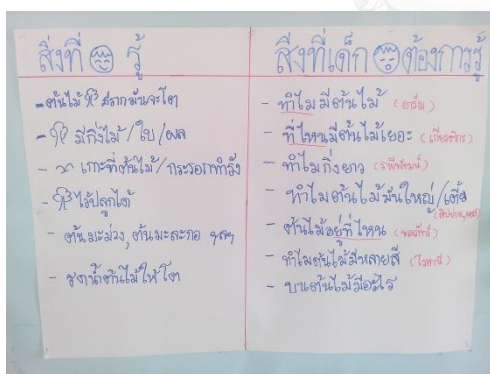 สิ่งที่ รู้
- ต้นไม้ รากมันจะโต
- มีกิ่งไม้/ใบ/ผล
- เกาะที่ต้นไม้/กระรอกทำรัง
- ไว้ปลูกได้
- ต้นมะม่วง, ต้นมะละกอ ฯลฯ
- รดน้ำต้นไม้ให้โต
สิ่งที่เด็ก ต้องการรู้
- ทำไมมีต้นไม้
- ที่ไหนมีต้นไม้เยอะ
- ทำไมกิ่งยาว
- ทำไมต้นไม้มันใหญ่/เตี้ย
- ต้นไม้อยู่ที่ไหน
- ทำไมต้นไม้มีหลายสี
- บนต้นไม้มีอะไร